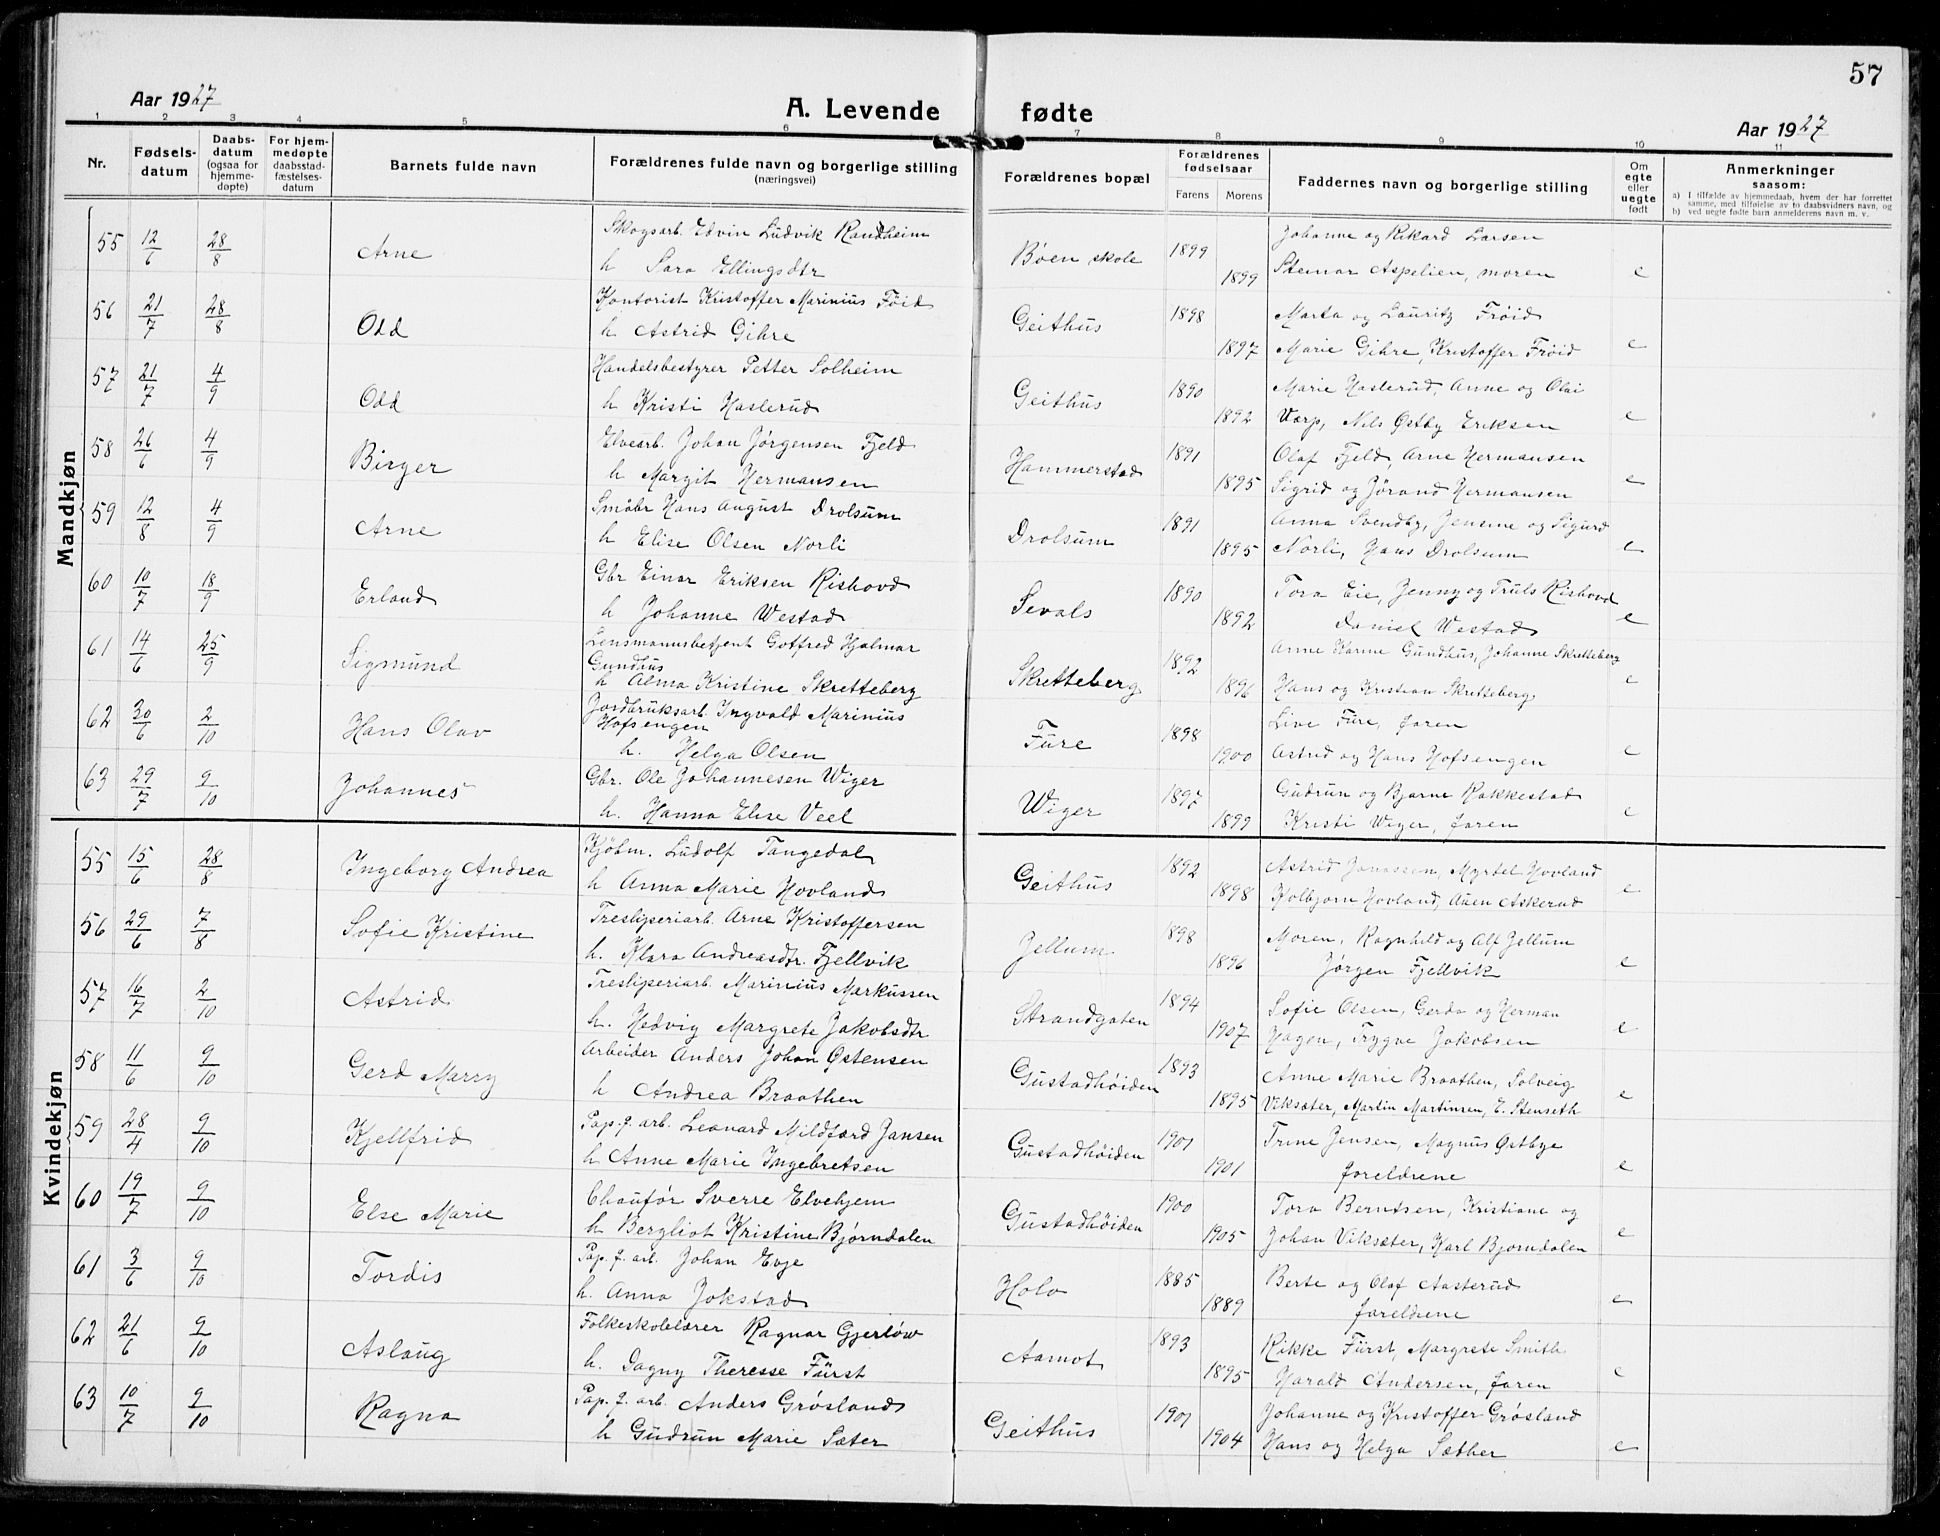 57
Aar 1927
A. Levende fødte
Aar 1927
1 2 3 4 5 6 7 8 9 10 11
Nr.
Fødsels-datum
Daabs-datum (ogsaa for hjemme-døpte)
For hjem-medøpte daabsstad-fæstelses-datum
Barnets fulde navn
Forældrenes fulde navn og borgerlige stilling (næringsvei)
Forældrenes bopæl
Forældrenes fødselsaar
Farens Morens
Faddernes navn og borgerlige stilling
Om egte eller uegte født
Anmerkninger saasom:
a) I tilfælde av hjemmedaab, hvem der har forrettet samme, med tilføielse av to daabsvidners navn, og
b) ved uegte fødte barn anmelderens navn m. v.
Mandkjøn
55 12/6 28/8 Arne Skogsarb. Edvin Ludvik Randheim Bøen skole 1899 Johanne og Rikard Larsen
h Sara Ellingsdtr 1899 Steinar Aspelien, moren e
56 21/7 28/8 Odd Kontorist Kristoffer Marinius Føid Geithus 1898 Marta og Lauritz Frøid
h Astrid Gihre 1897 Marie Gihre, Kristoffer Frøid e
57 21/7 4/9 Odd Handelsbestyrer Petter Solheim Geithus 1890 Marie Haslerud, Anne og Olai
h Kristi Haslerud 1892 Varp, Nils Østby Eriksen e
58 26/6 4/9 Birger Elvearb. Johan Jørgensen Fjeld Hammerstad 1891 Olaf Fjeld, Arne Hermansen
h Margit Hermansen 1895 Sigrid og Jørand Hermansen e
59 12/8 4/9 Arne Småbr Hans August Drolsum Drolsum 1891 Anna Svendby, Jensine og Sigurd
h Elise Olsen Norli 1895 Norli, Hans Drolsum e
60 10/7 18/9 Erland Gbr Einar Eriksen Rishovd Sevals 1890 Tora Eie, Jenny og Truls Rishovd
h Johanne Westad 1892 Daniel Westad e
61 14/6 25/9 Sigmund Lensmannsbetjent Gotfred Hjalmar Gundhus Skretteberg 1892 Anne Karine Gundhus, Johanne Skretteberg
h Alma Kristine Skretteberg 1896 Hans og Kristian Skretteberg e
62 30/6 2/10 Hans Olav Jordbruksarb. Ingvald Marinius Hofsengen Fure 1898 Live Fure, faren
h. Helga Olsen 1900 Astrid og Hans Hofsengen e
63 29/7 9/10 Johannes Gbr. Ole Johannesen Wiger Wiger 1897 Gudrun og Bjarne Rakkestad
h. Hanna Elise Veel 1899 Kristi Wiger, faren e
Kvindekjøn
55 15/6 28/8 Ingeborg Andrea Kjøbm. Ludolf Tangedal Geithus 1892 Astrid Jonassen, Myrtel Hovland
h Anna Marie Hovland 1898 Kolbjørn Hovland, Auen Askerud e
56 29/6 7/8 Sofie Kristine Tresliperiarb. Arne Kristoffersen Jellum 1898 Moren, Ragnhild og Alf Jellum
h. Klara Andreasdtr. Fjellvik 1896 Jørgen Fjellvik e
57 16/7 2/10 Astrid Tresliperiarb. Marinius Markussen Strandgaten 1894 Sofie Olsen, Gerda og Herman
h. Hedvig Margrete Jakobsdtr 1907 Hagen, Trygve Jakobsen e
58 11/6 9/10 Gerd Marry Arbeider Anders Johan Østensen Gustadhøiden 1893 Anne Marie Braathen, Solveig
h Andrea Braathen 1895 Viksæter, Martin Martinsen, E. Stenseth e
59 28/4 9/10 Kjellfrid Pap. f. arb. Leonard Mildford Jansen Gustadhøiden 1901 Trine Jensen, Magnus Østbye
h Anne Marie Ingebretsen 1901 foreldrene e
60 19/7 9/10 Else Marie Chauför Sverre Elvehjem Gustadhøiden 1900 Tora Berntsen, Kristiane og
h Bergliot Kristine Bjørndalen 1905 Johan Viksæter, Karl Bjørndalen e
61 3/6 9/10 Tordis Pap. f. arb. Johan Evje Holo 1885 Berte og Olaf Aasterud
h. Anna Jokstad 1889 foreldrene e
62 21/6 9/10 Aslaug Folkeskolelærer Ragnar Gjerløw Aamot 1893 Rikke Fürst, Margrete Smith
h. Dagny Theresse Fürst 1895 Harald Andersen, faren e
63 10/7 9/10 Ragna Pap. f. arb. Anders Grøsland Geithus 1901 Johanne og Kristoffer Grøsland
h Gudrun Marie Sæter 1904 Hans og Helga Sæther e